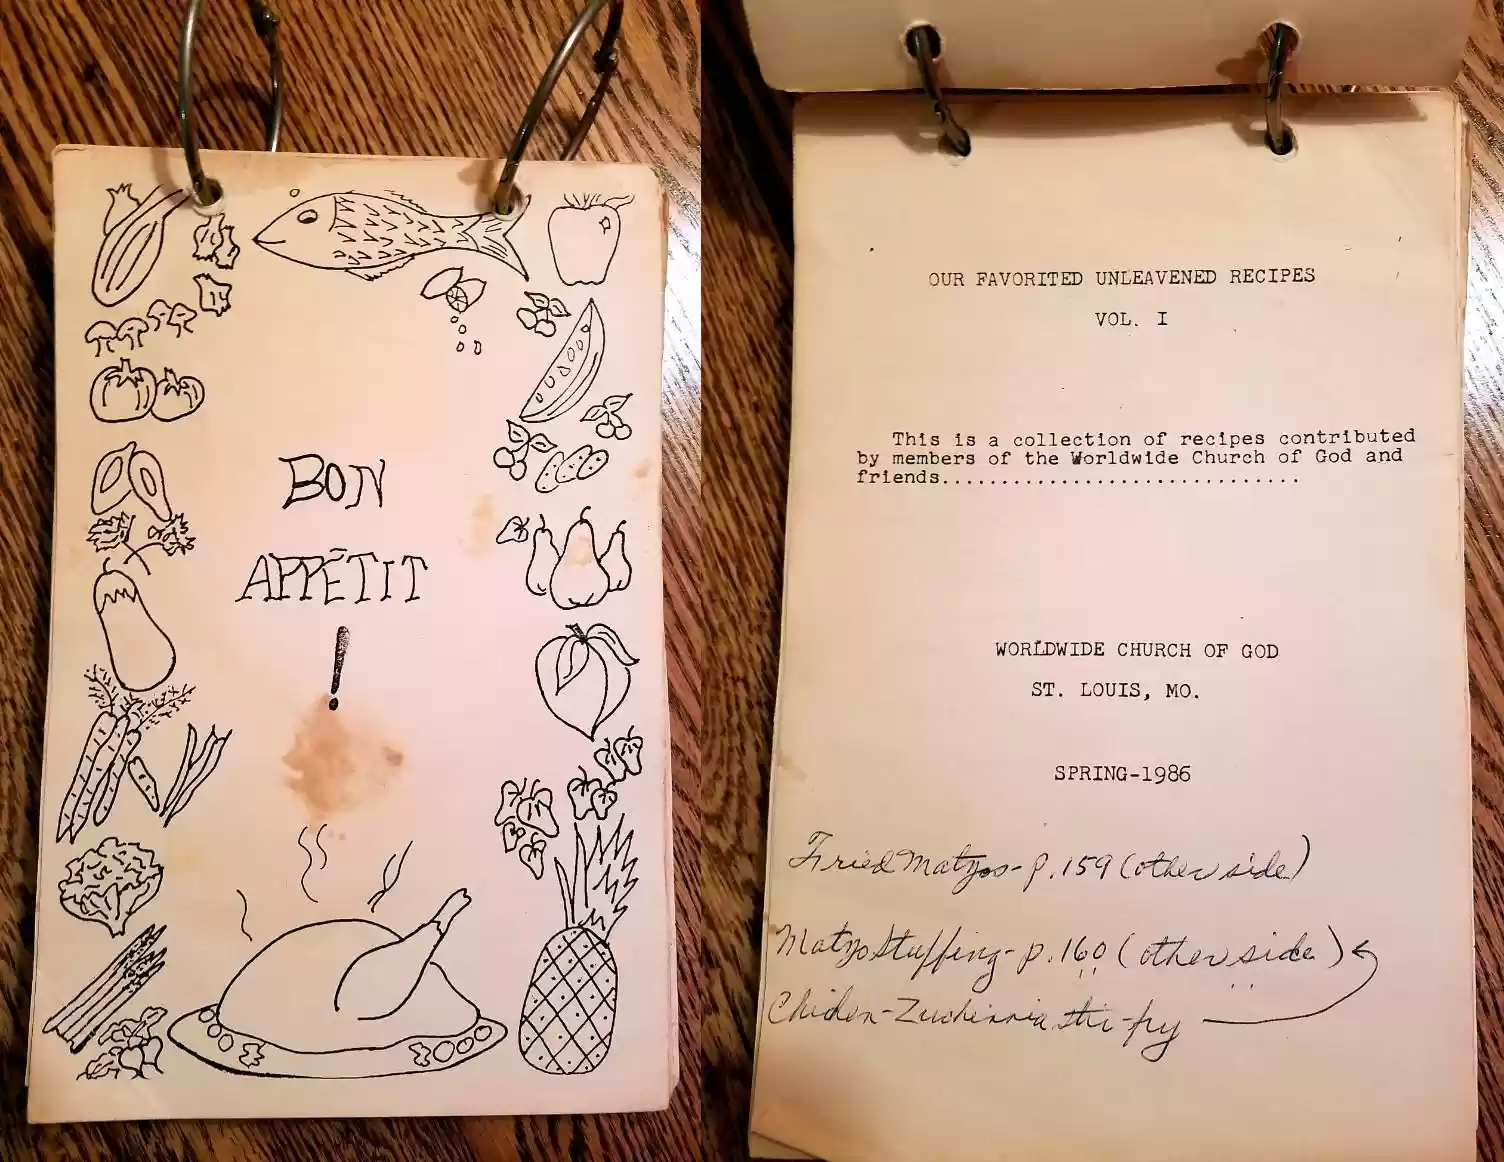 BON
APPÉTIT
!
OUR FAVORITED UNLEAVENED RECIPES
VOL. I
This is a collection of recipes contributed
by members of the Worldwide Church of God and
friends..............................
WORLDWIDE CHURCH OF GOD
ST. LOUIS, MO.
SPRING-1986
Fried Matzos - p. 159 (other side)
Matzo Stuffing - p. 160 (other side)
stir-fry